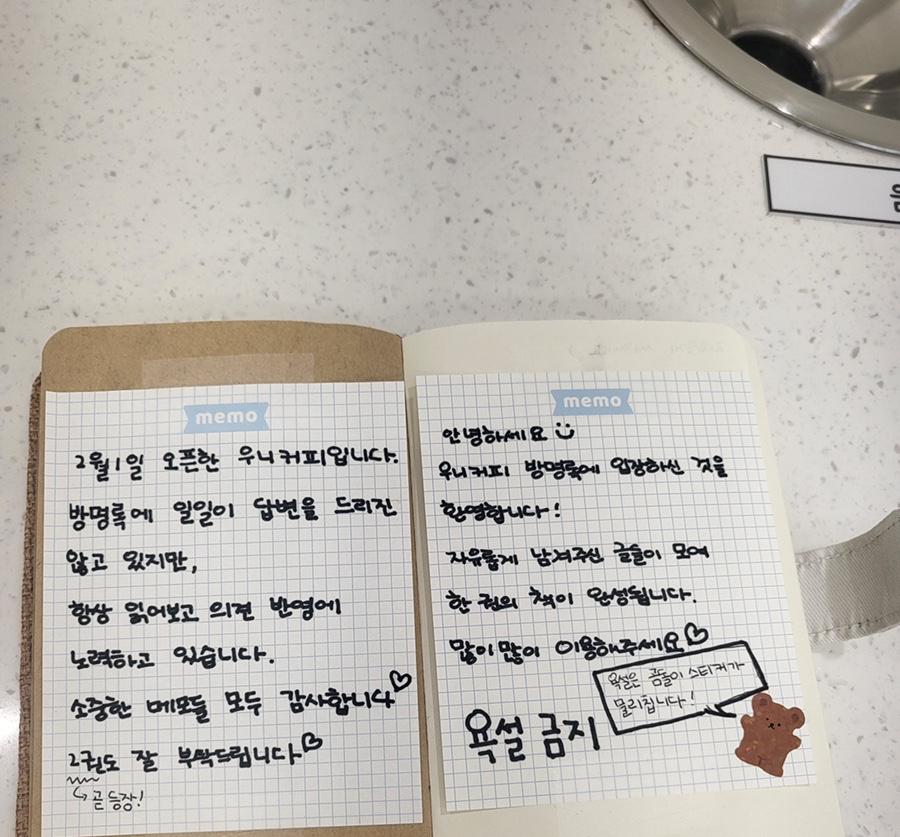 memo
2월1일 오픈한 우니커피입니다.
방명록에 일일이 답변을 드리진
않고 있지만,
항상 읽어보고 의견 반영에
노력하고 있습니다.
소중한 메모들 모두 감사합니다♡
2권도 잘 부탁드립니다♡
곧 등장!
memo
안녕하세요
우니커피 방명록에 입장하신 것을
환영합니다!
자유롭게 남겨주신 글들이 모여
한 권의 책이 완성됩니다.
많이많이 이용해주세요♡
욕설은 곰돌이 스티커가
물리칩니다!
욕설 금지